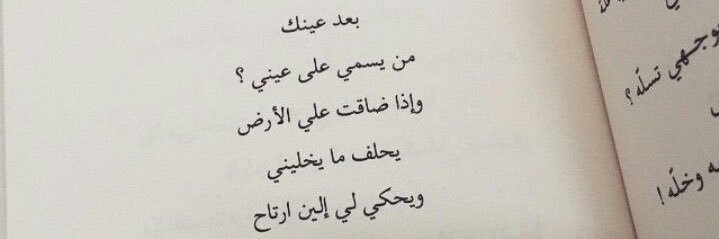 بعد عينك
من يسمي على عيني ؟
وإذا ضاقت علي الأرض
يحلف ما يخليني
ويحكي لي إلين ارتاح
تسلّه ؟
وخلّه !